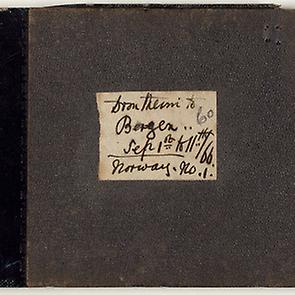 Drontheim to
60
Bergen..
Sep 1st to 11th/66
Norway. No. 1.